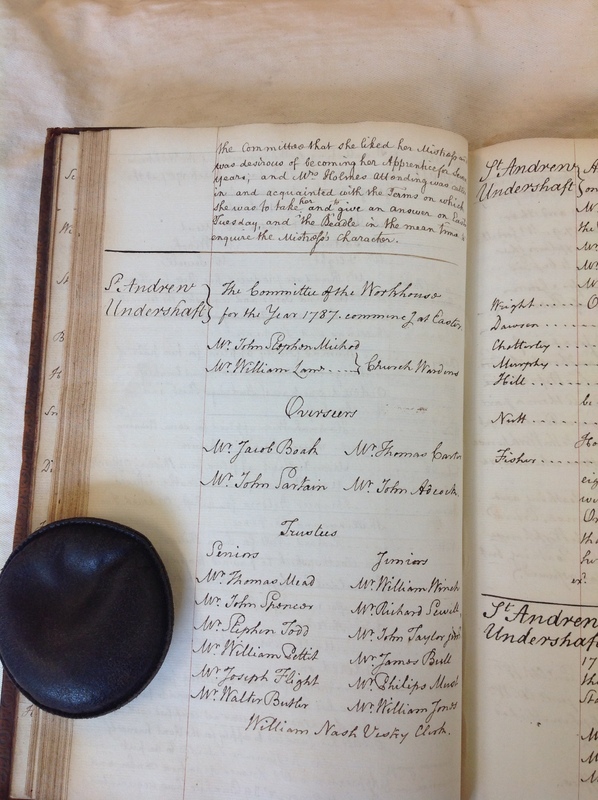 the Committee that she liked her Mistress
was desirous of becoming her Apprentice for
years, and Mrs Holmes attending was
in and acquainted with the Terms on which
she was to take her and to give an answer on
Tuesday, and the Beadle in the mean time to
enquire the Mistress's Character.
St Andrew
Undershaft
The Committee of the Workhouse
for the Year 1787. commencg at Easter
Mr John Stephen Michod
Mr William Lane .... Church Wardens
Overseers
Mr Jacob Boak Mr Thomas
Mr John Partain Mr John Adcock
Trustees
Seniors Juniors
Mr Thomas Mead Mr William
Mr John Spencer Mr Richard Sewell
Mr Stephen Todd Mr John Taylor Junr
Mr William Pettit Mr James Bull
Mr Joseph Flight Mr Philips
Mr Walter Butler Mr William Jones
William Nash Vestry Clerk.
St Andrew
Undershaft
Wright ......
Dawson ......
Chatterley ....
Murphy ......
Hill .......
Nutt ........
Fisher ........
St Andrew
Undershaft